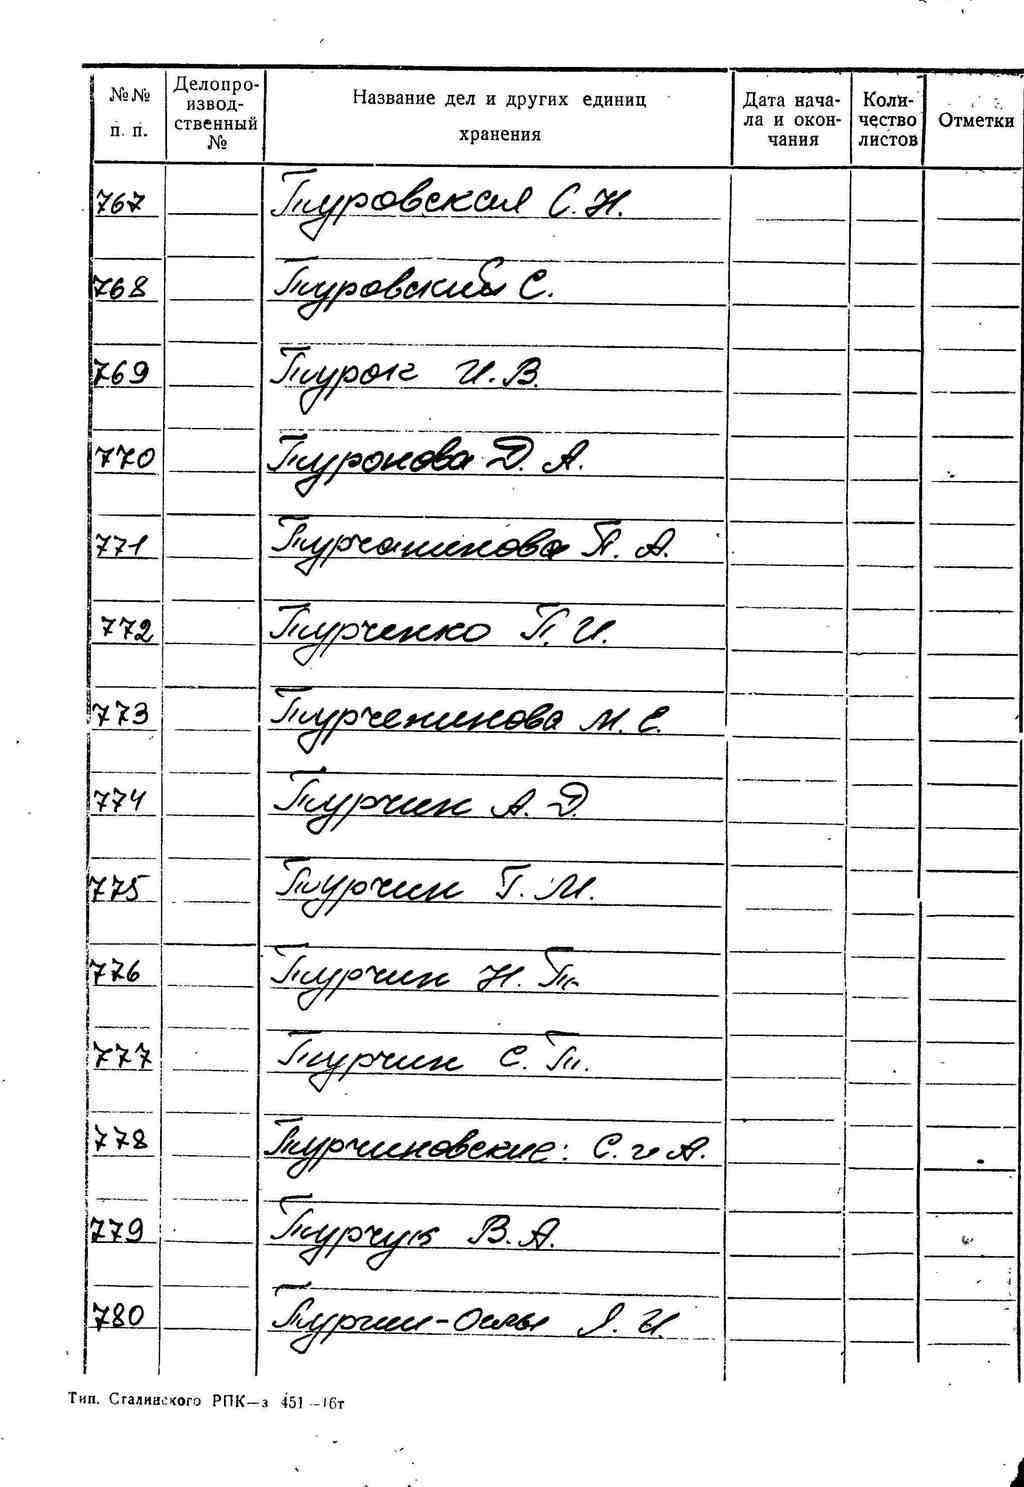 №№ п. п. Делопроизводственный № Название дел и других единиц хранения Дата начала и окончания Количество листов Отметки
767 Туровская С. Н.
768 Туровский С.
769 Турок И. В.
770 Туронова Д. А.
771 Турчанинова П. А.
772 Турченко П. И.
773 Турченинова М. Е.
774 Турчин А. Д.
775 Турчин Г. М.
776 Турчин Н. Т.
777 Турчин С. Т.
778 Турчиновские: С. и А.
779 Турчук В. А.
780 Я. И.
Тип. Сталинского РПК—з 451—16т